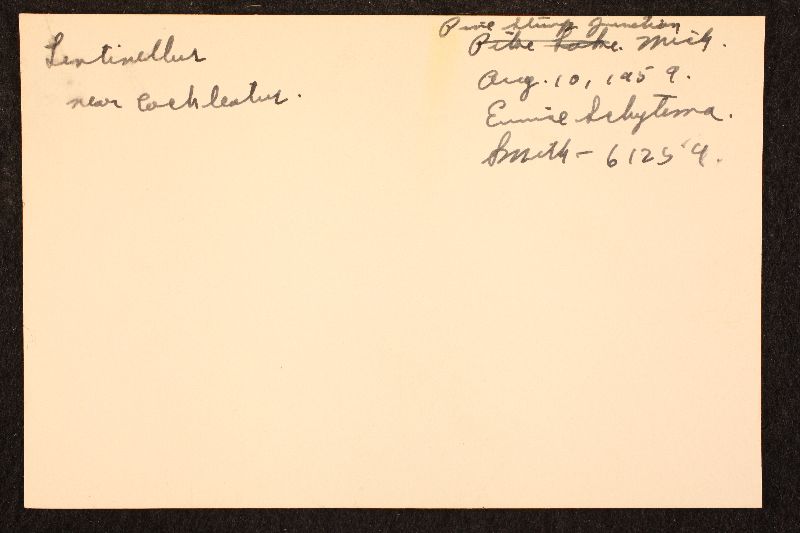 Lentinellus
near cochleatus.
Pine Stump Junction
Pike Lake. Mich.
Aug. 10, 1959.
Eunice Schytema.
Smith - 61259.